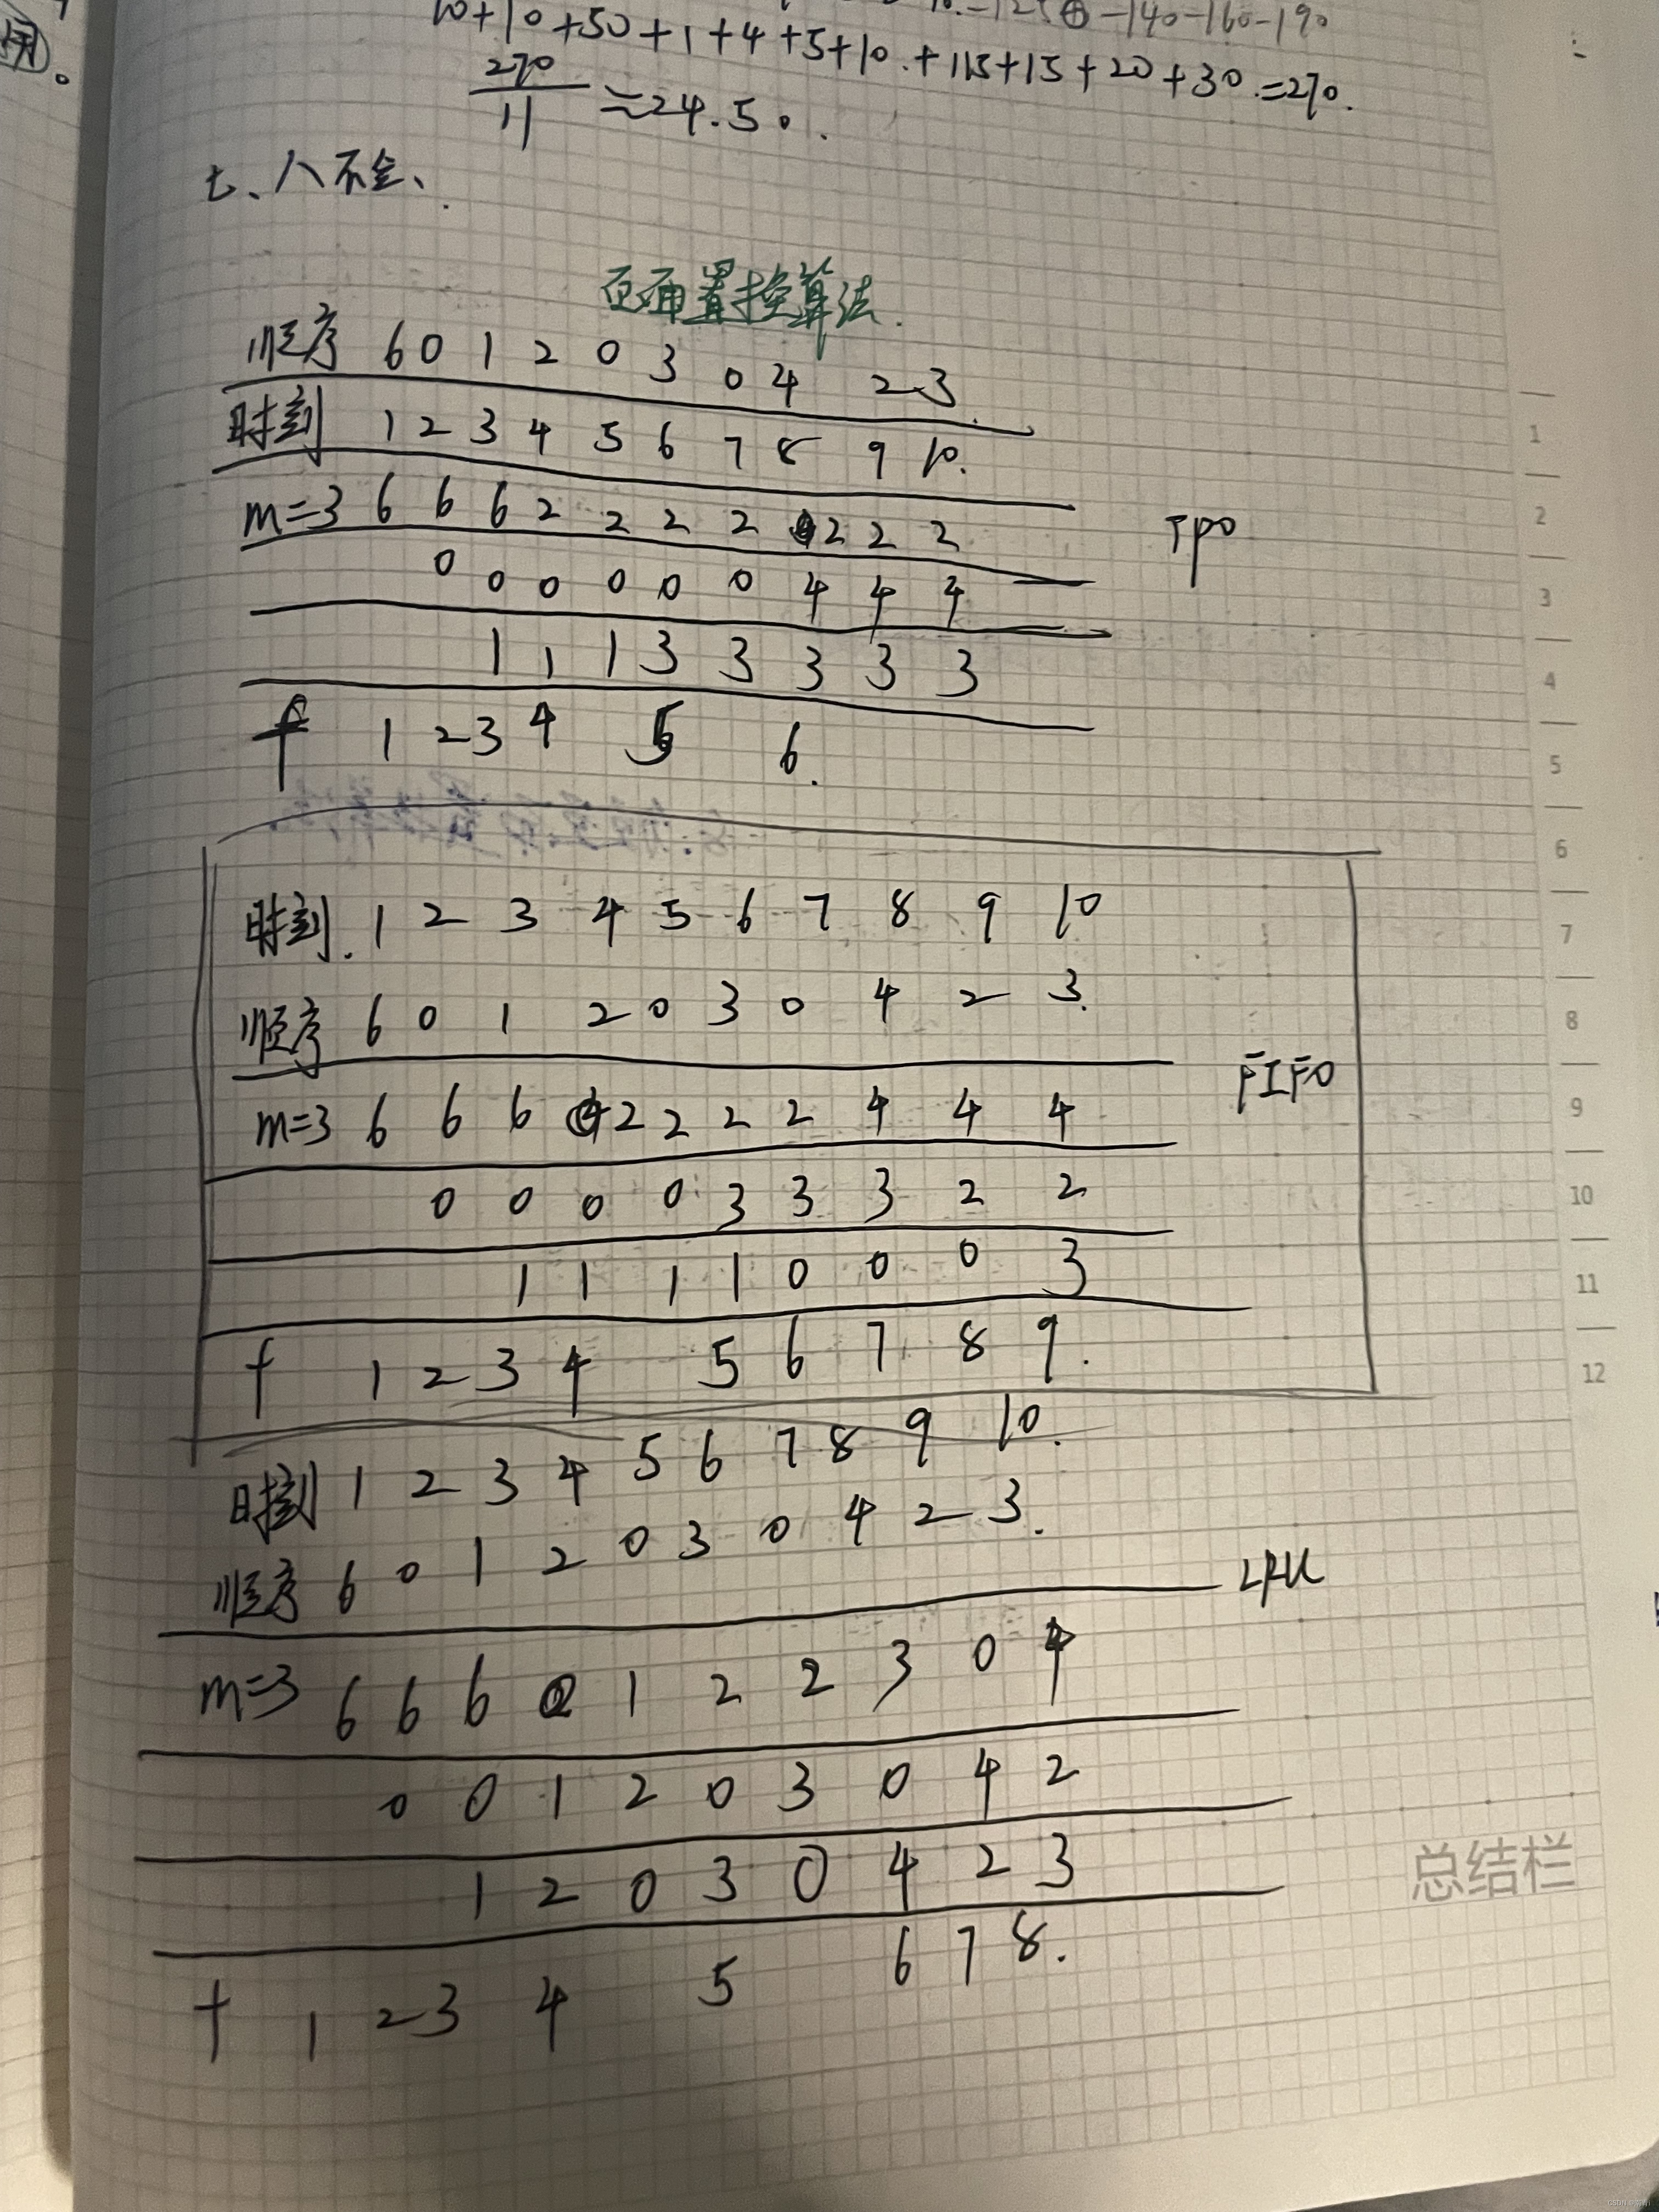 10+10+50+1+4+5+10.+115+15+20+30.=270.
270
11
≈24.50.
七、八不会、
页面置换算法.
顺序 6 0 1 2 0 3 0 4 2 3.
时刻 1 2 3 4 5 6 7 8 9 10.
m=3 6 6 6 2 2 2 2 2 2 2
TPO
0 0 0 0 0 0 4 4 4
1 1 1 3 3 3 3 3
f 1 2 3 4 5 6.
时刻. 1 2 3 4 5 6 7 8 9 10
顺序 6 0 1 2 0 3 0 4 2 3.
FIFO
m=3 6 6 6 2 2 2 2 4 4 4
0 0 0 0 3 3 3 2 2
1 1 1 1 0 0 0 3
f 1 2 3 4 5 6 7 8 9.
时刻 1 2 3 4 5 6 7 8 9 10.
顺序 6 0 1 2 0 3 0 4 2 3.
LRU
m=3 6 6 6 0 1 2 2 3 0 4
0 0 1 2 0 3 0 4 2
1 2 0 3 0 4 2 3
f 1 2 3 4 5 6 7 8.
1
2
3
4
5
6
7
8
9
10
11
12
总结栏